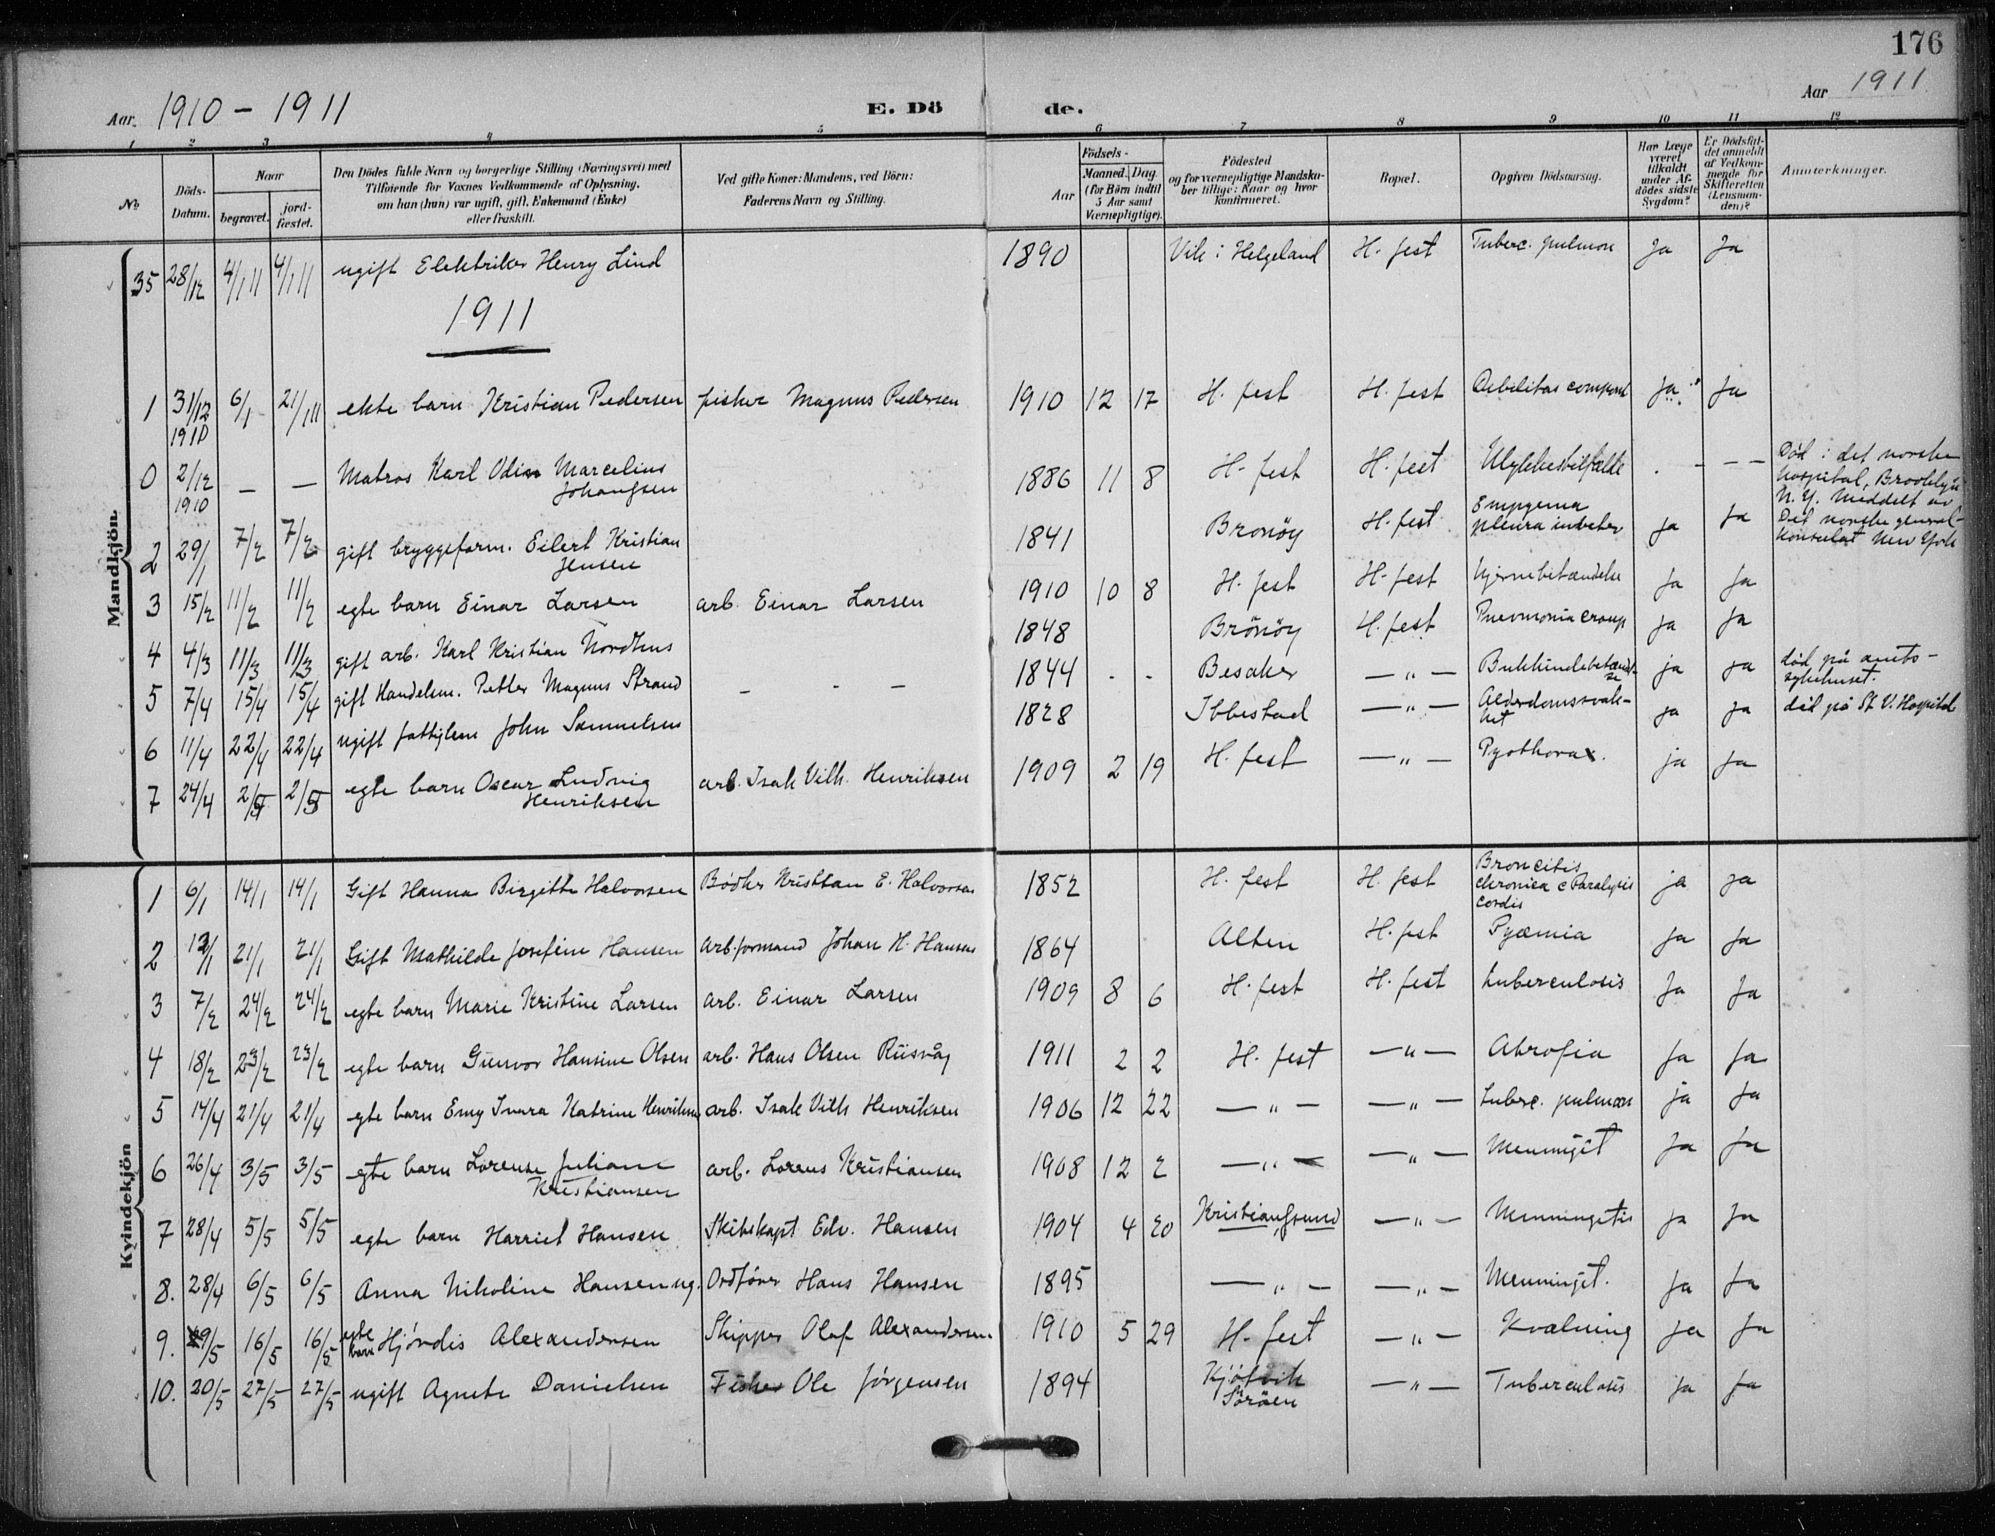 176
Aar 1910 - 1911 E. Dö de. Aar 1911
1 2 3 4 5 6 7 8 9 10 11 12
No. Döds-Datum. Naar begravet. jord-fæstet. Den Dödes fulde Navn og borgerlige Stilling (Næringsvei) med Tilföiende for Voxnes Vedkommende af Oplysning, om han (hun) var ugift, gift, Enkemand (Enke) eller fraskilt. Ved gifte Koner: Mandens, ved Börn: Faderens Navn og Stilling. Födsels- Aar Maaned. Dag. (for Börn indtil 5 Aar samt Værnepligtige). Födested og for værnepligtige Mandskaber tillige: Naar og hvor Konfirmeret. Bopæl. Opgiven Dödsaarsag. Har Læge været tilkaldt under Afdödes sidste Sygdom? Er Dödsfaldet anmeldt af Vedkommende for Skifteretten (Lensmanden)? Anmærkninger.
Mandkjön
35 28/12 4/1 11 4/1 11 ugift Elektriker Henry Lind 1890 Vik i Helgeland H. fest Tuberc. pulmon Ja Ja
1911
1 31/12 1910 6/1 21/1 11 ekte barn Kristian Pedersen fisker Magnus Pedersen 1910 12 17 H. fest H. fest Debilitas Ja Ja
0 2/12 1910 — — Matros Karl Odin Marcelius Johanssen 1886 11 8 H. fest H. fest Ulykkestilfælde - - - Död i det norske hospital, Brooklyn N.Y. Meddelt av Det norske general-konsulat New York
2 29/1 7/2 7/2 gift bryggeform. Eilert Kristian Jensen 1841 Bronöy H. fest Empyema pleura ja ja
3 15/2 11/2 11/2 egte barn Einar Larsen arb. Einar Larsen 1910 10 8 H. fest H. fest Hjernebetændelse Ja Ja
4 4/3 11/3 11/3 gift arb. Karl Kristian 1848 Brönöy H. fest Pneumonia croup ja ja
5 7/4 15/4 15/4 gift Handelsm. Petter Magnus Strand - - - 1844 - - Besaker — " — Bukhindebetændelse ja ja död på amts-sykehuset.
6 11/4 22/4 22/4 ugift fattiglem John Samuelsen 1828 Ibbestad — " — Alderdomssvakhet ja ja död på St. V. Hospital
7 24/4 2/5 2/5 egte barn Oscar Ludvig Henriksen arb. Isak Vilh. Henriksen 1909 2 19 H. fest — " — Pyothorax. ja ja
Kvindekjön
1 6/1 14/1 14/1 Gift Hanna Birgitte Halvorsen Bödker Kristian E. Halvorsen 1852 H. fest H. fest Broncitis chronica c Paralysis cordis ja ja
2 13/1 21/1 21/1 Gift Mathilde Josefine Hansen Arb.formand Johan H. Hansen 1864 Alten H. fest Pyæmia Ja Ja
3 7/2 24/2 24/2 egte barn Marie Kristine Larsen arb. Einar Larsen 1909 8 6 H. fest H. fest tuberculosis Ja Ja
4 18/2 23/2 23/2 egte barn Gunvor Hansine Olsen arb. Hans Olsen Riisvåg 1911 2 2 H. fest — " — Atrofia Ja Ja
5 14/4 21/4 21/4 egte barn Emy Ivara Katrine Henriksen arb. Isak Vilh Henriksen 1906 12 22 — " — — " — tuberc. pulmon ja Ja
6 26/4 3/5 3/5 egte barn Lorense Juliane Kristiansen arb. Lorens Kristiansen 1908 12 2 — " — — " — Menningit Ja Ja
7 28/4 5/5 5/5 egte barn Harriet Hansen Skibskapt Edv. Hansen 1904 4 20 Kristianssund — " — Menningitis ja Ja
8. 28/4 6/5 6/5 Anna Nikoline Hansen ug. Ordförer Hans Hansen 1895 — " — — " — Menningit. ja Ja
9. 9/5 16/5 16/5 egte barn Hjördis Alexandersen Skipper Olaf Alexandersen 1910 5 29 H. fest — " — Kvælning ja Ja
10. 20/5 27/5 27/5 ugift Agnete Danielsen Fisker Ole Jørgensen 1894 Kjöfvik Söröen — " — Tuberculosis ja Ja